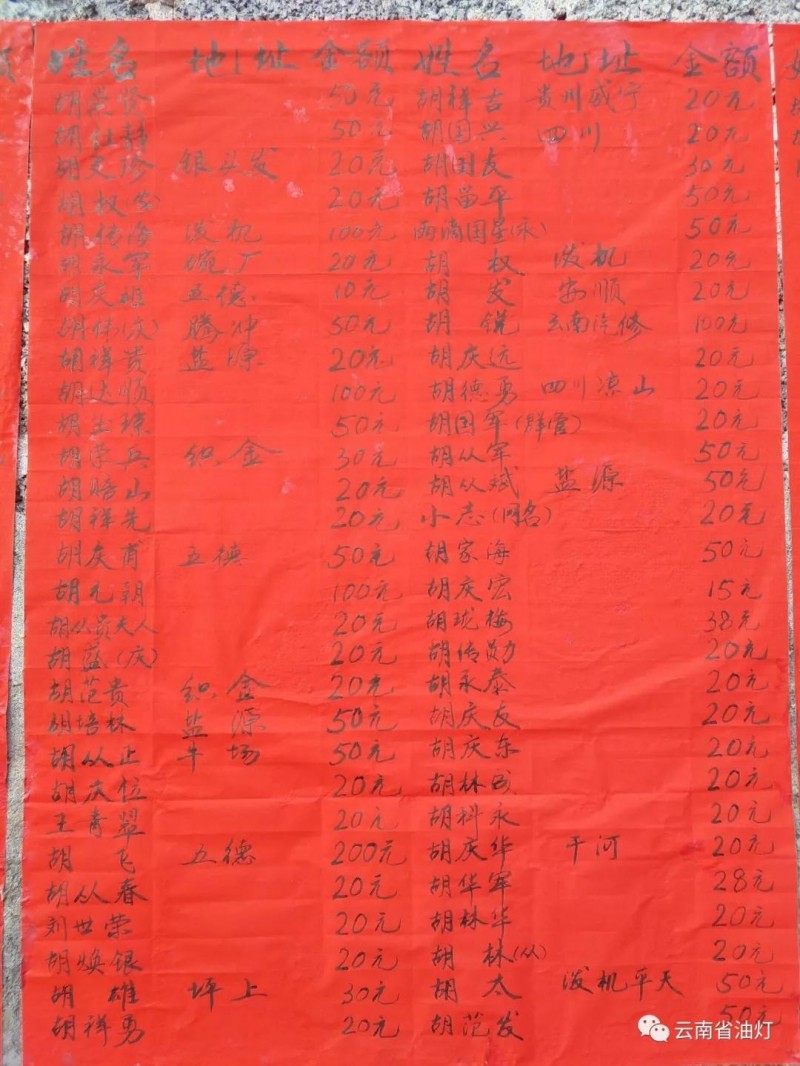 姓名 地址 金额 姓名 地址 金额
胡荣贤 50元 胡祥吉 贵州威宁 20元
胡社静 50元 胡国兴 四川 20元
胡文珍 银头发 20元 胡国友 30元
胡权発 20元 胡苗平 50元
胡传海 泼机 100元 西满国星(永) 50元
胡永军 碗厂 20元 胡权 泼机 20元
胡庆雄 五德 10元 胡发 安顺 20元
胡伟(庆) 腾冲 50元 胡锐 云南汽修 100元
胡祥贵 盐源 20元 胡庆远 20元
胡达顺 100元 胡德勇 四川凉山 20元
胡生琼 50元 胡国军(群管) 20元
胡荣兵 织金 30元 胡从军 50元
胡赔山 20元 胡从斌 盐源 50元
胡祥先 20元 小志(网名) 20元
胡庆甫 五德 50元 胡家海 50元
胡元朝 100元 胡庆宏 15元
胡从贵夫人 20元 胡珑梅 38元
胡益(庆) 20元 胡传勋 20元
胡范贵 织金 20元 胡永泰 20元
胡培林 盐源 50元 胡庆友 20元
胡从正 牛场 50元 胡庆东 20元
胡庆位 20元 胡林 20元
王青翠 20元 胡科永 20元
胡飞 五德 200元 胡庆华 干河 20元
胡从春 20元 胡华军 28元
刘世荣 20元 胡林华 20元
胡焕银 20元 胡林(从) 20元
胡雄 坪上 30元 胡太 泼机平天 50元
胡祥勇 20元 胡范发 50元
云南省油灯